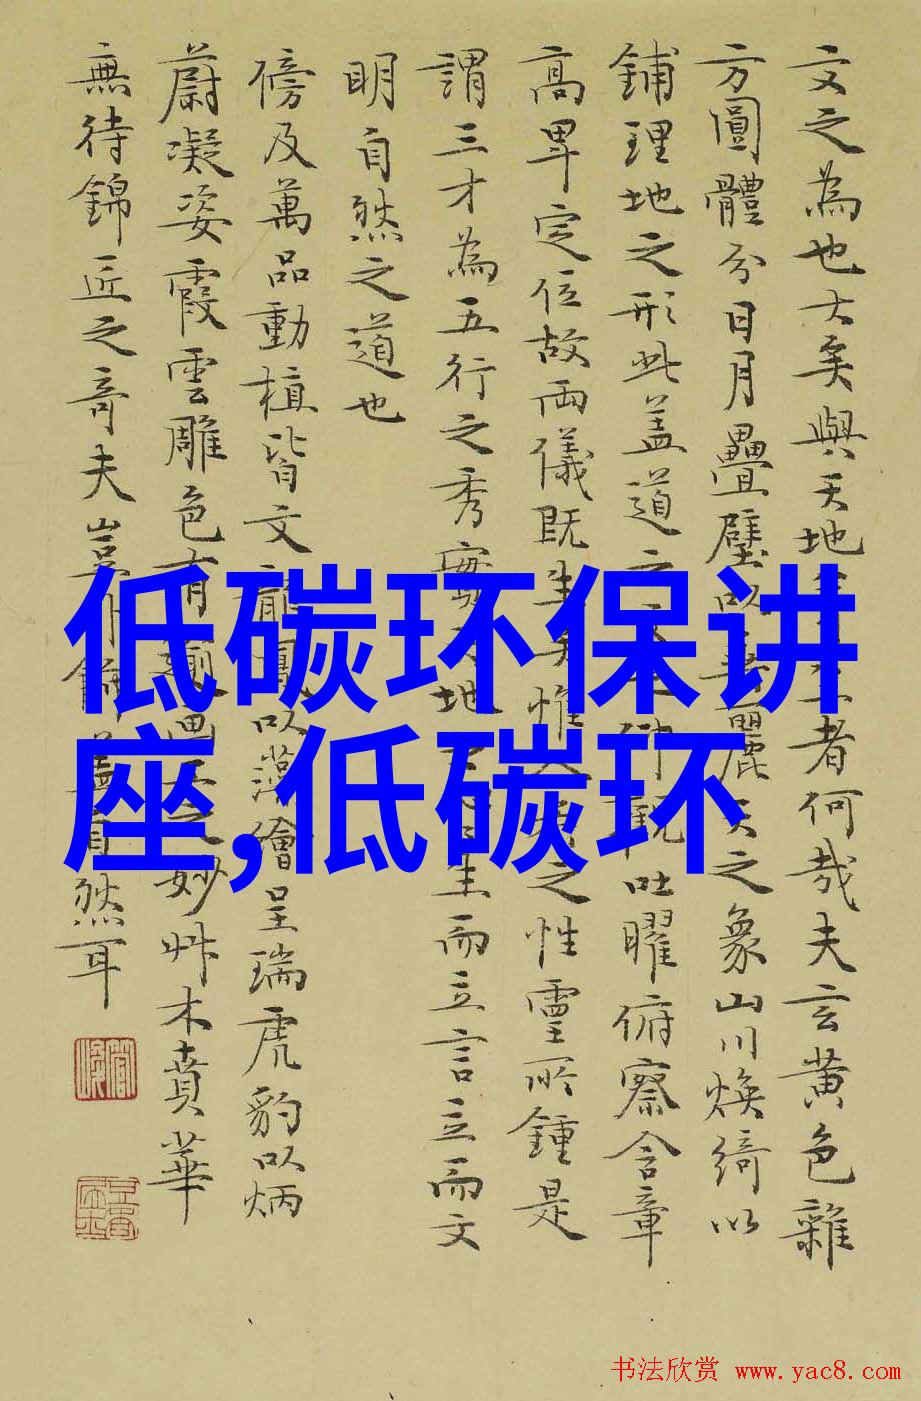 文之為也大矣與天地
者何哉夫玄黄色雜
方圓體分日月疊璧以
麗天之象山川煥綺以
鋪理地之形此盖道之
仰觀吐曜俯察含章
高卑定位故兩儀既生矣惟人
之性靈所鍾是
謂三才為五行之秀實天地
生而立言立而文
明自然之道也
傍及萬品動植皆文龍鳳以藻繪呈瑞虎豹以炳
蔚凝姿霞雲雕色有
之妙艸木賁華
無待錦匠之奇夫豈外飾盖自然耳
低碳环保讲
座,低碳环
书法欣赏 www.yac8.com